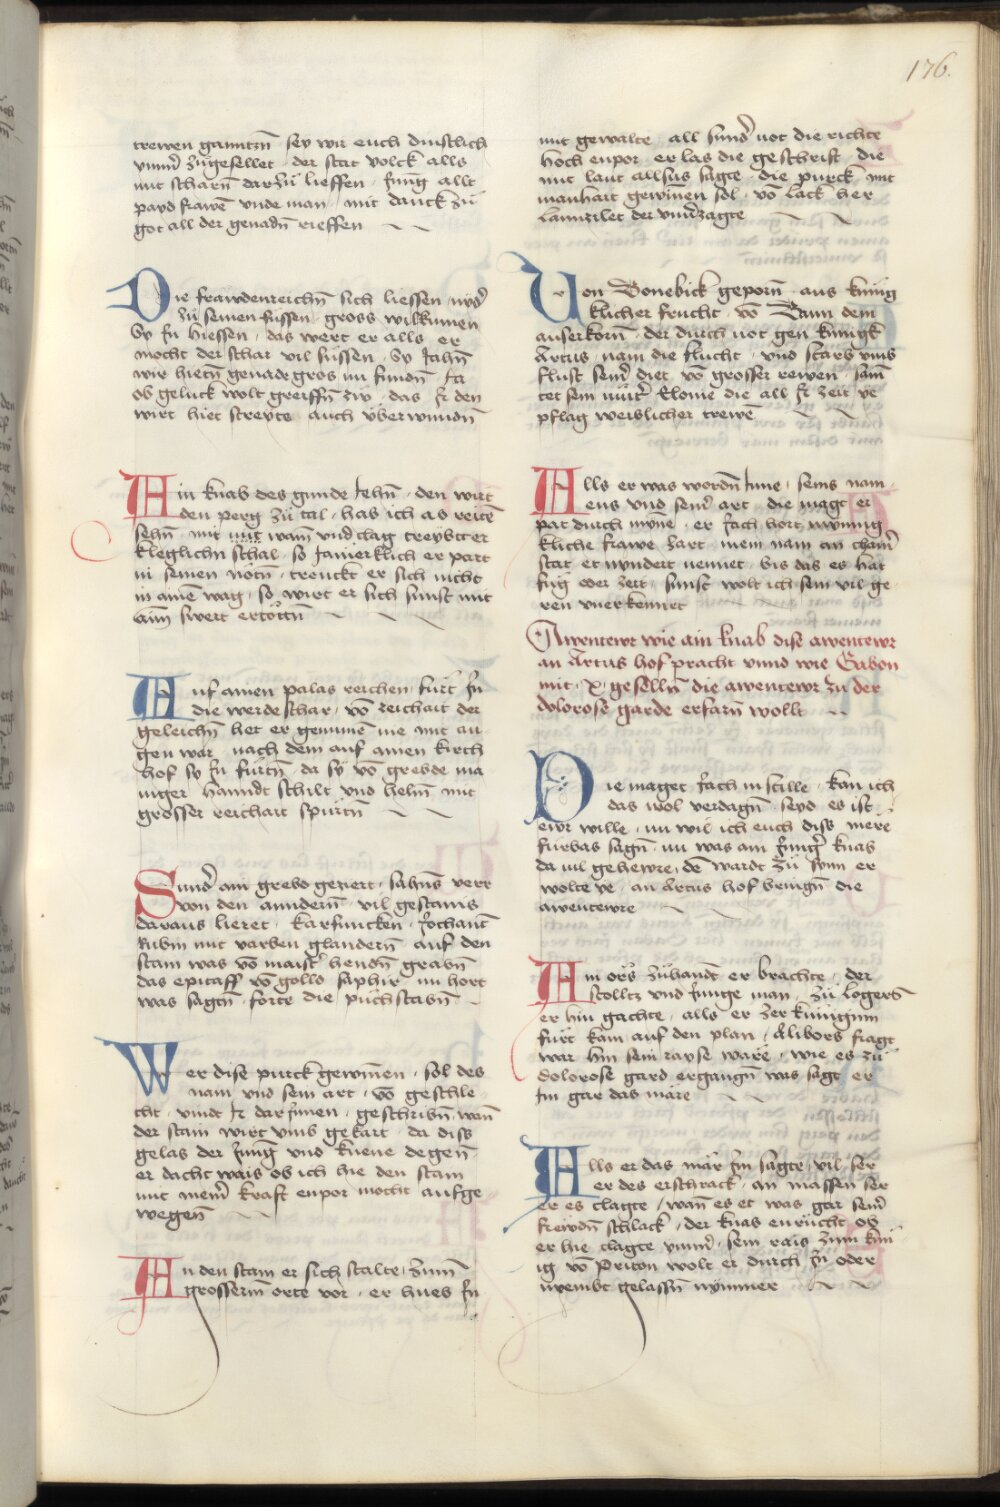 176.
trewen ganntzn̄ sey wir euch dinstlich
ymm̄ zugesellet der stat volck alls
mit scharn̄ darzu lieffen Jung allt
payd frawē vnde man mit danck zu
got all der genadn̄ rieffen
Die frawdenreichn̄ sich liessen nyd̄
zu seinen fussen gross wilkumen
Sy Jn hiessen das wert er alls er
mocht der schar vil sussen Sy Jahn̄
wir hietn̄ genade gros im fundn̄ Ja
ob geluck wolt greiffn̄ zw das Jr den
wirt hiet streyte auch vberwundn̄
Ain knab des gunde Jehn̄ den wirt
den perg zu tal has ich ab reitē
sehn̄ mit wain̄ vnd clag treybt er
kleglichn̄ schal so Jamerklich er part
in seinen notn̄ trenckt er sich nicht
in ainē wag so wirt er sich sunst mit
aim swert ertottn̄
Auf ainen palas reichen furt Jn̄
die werde schar vō reichait der
geleichn̄ het er genumē nie mit au
gen war nach dem auf ainen kirch
hof sy Jn furtn̄ da sy vō grebde ma
niger hanndt schilt vnd helm̄ mit
grosser reichait spurtn̄
Sund̄ ain grebd geziert sahns verr
von den anndern̄ vil gestains
daraus lieret karfuncken Jochant
Rubin mit varben glandern̄ auf den
stain was vō maist̄ henndn̄ grabn̄
das epitaff vō golld saphir nu hort
was sagtn̄ forte die puchstabn̄
Wer dise purck gewinen sol des
nam vnd sein art vō geschle
cht vindt Jr darjnnen geschribn̄ wen̄
der stain wirt vmb gekart da diss
gelas der Jung vnd kuene degen
er dacht wais ob ich hie den stain
mit meinr̄ kraft enpor mocht aufge
wegen̄
An den stain er sich stalte zum
grosserm̄ orte vor er hueb Jn
mit gewalte all sund̄ not die richte
hoch enpor er las die geschrift die
mit laut allsus sagte die purck mit
manhait gewinen sol vō lack her
Lanntzilet der vnuerzagte
Von Bonebick geporn̄ aus kunig
klicher frucht vō Bann dem
auserkorn̄ der durch not gen kunigk
Artus nam die flucht vnd starb vmb
flust seinr̄ diet vō grosser rewen samt
tet sein muet̄ Elonie die all Jr zeit ye
pflag weislicher trewē
Alls er was wordn̄ Jnne seins nam
ens vnd seinr̄ art die magt er
pat durch mynne er sach hort mynnig
kliche frawe zart mein nam an chainr̄
stat er nyndert nennet bis das es hat
fug oder zeit sunst wolt ich sein vil ge
ren vnerkennet
Awentewr wie ain knab dise awentewr
an Artus hof pracht vnnd wie Gabon
mit x geselln̄ die awentewr zu der
dolorose garde erfarn̄ wollt
Die maget sach in stille kan ich
das wol verdagn̄ seyd es ist
ewr wille nu wil ich euch diss mere
furbas sagn̄ nu was ain Junḡ knab
da vil gehewre dē wardt zu synn er
wolte ye an Artus hof bringn̄ die
awentewre
Ain ors zuhandt er brachte der
stolltz vnd Junge man zu Logers
er hin gachte alls er der kunigin
furt kam auf den plan Alibors fragt
war hin sein rayse ware wie es zu
dolorose gard ergangn̄ was sagt er
Jm gar das mare
Alls er das mār Jm sagte vil ser
er des erschrack an massen ser
er es clagte wān es et was gar seinr̄
frewdn̄ schlack der knab enrucht ob
er hie clagte ymm̄ sein rais zum kun
ig vō Priton wolt er durch Jn oder
nyembt gelassn̄ nymmer